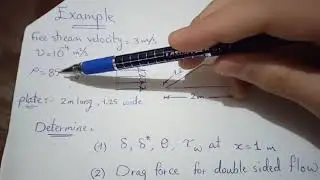 Example
free stream velocity = 3 m/s
ν = 10⁻⁴ m²/s
ρ = 8
plate:- 2m long, 1.25 wide
2m
Determine.
(1) δ, δ*, θ, τw at x = 1 m
(2) Drag force for double sided flow